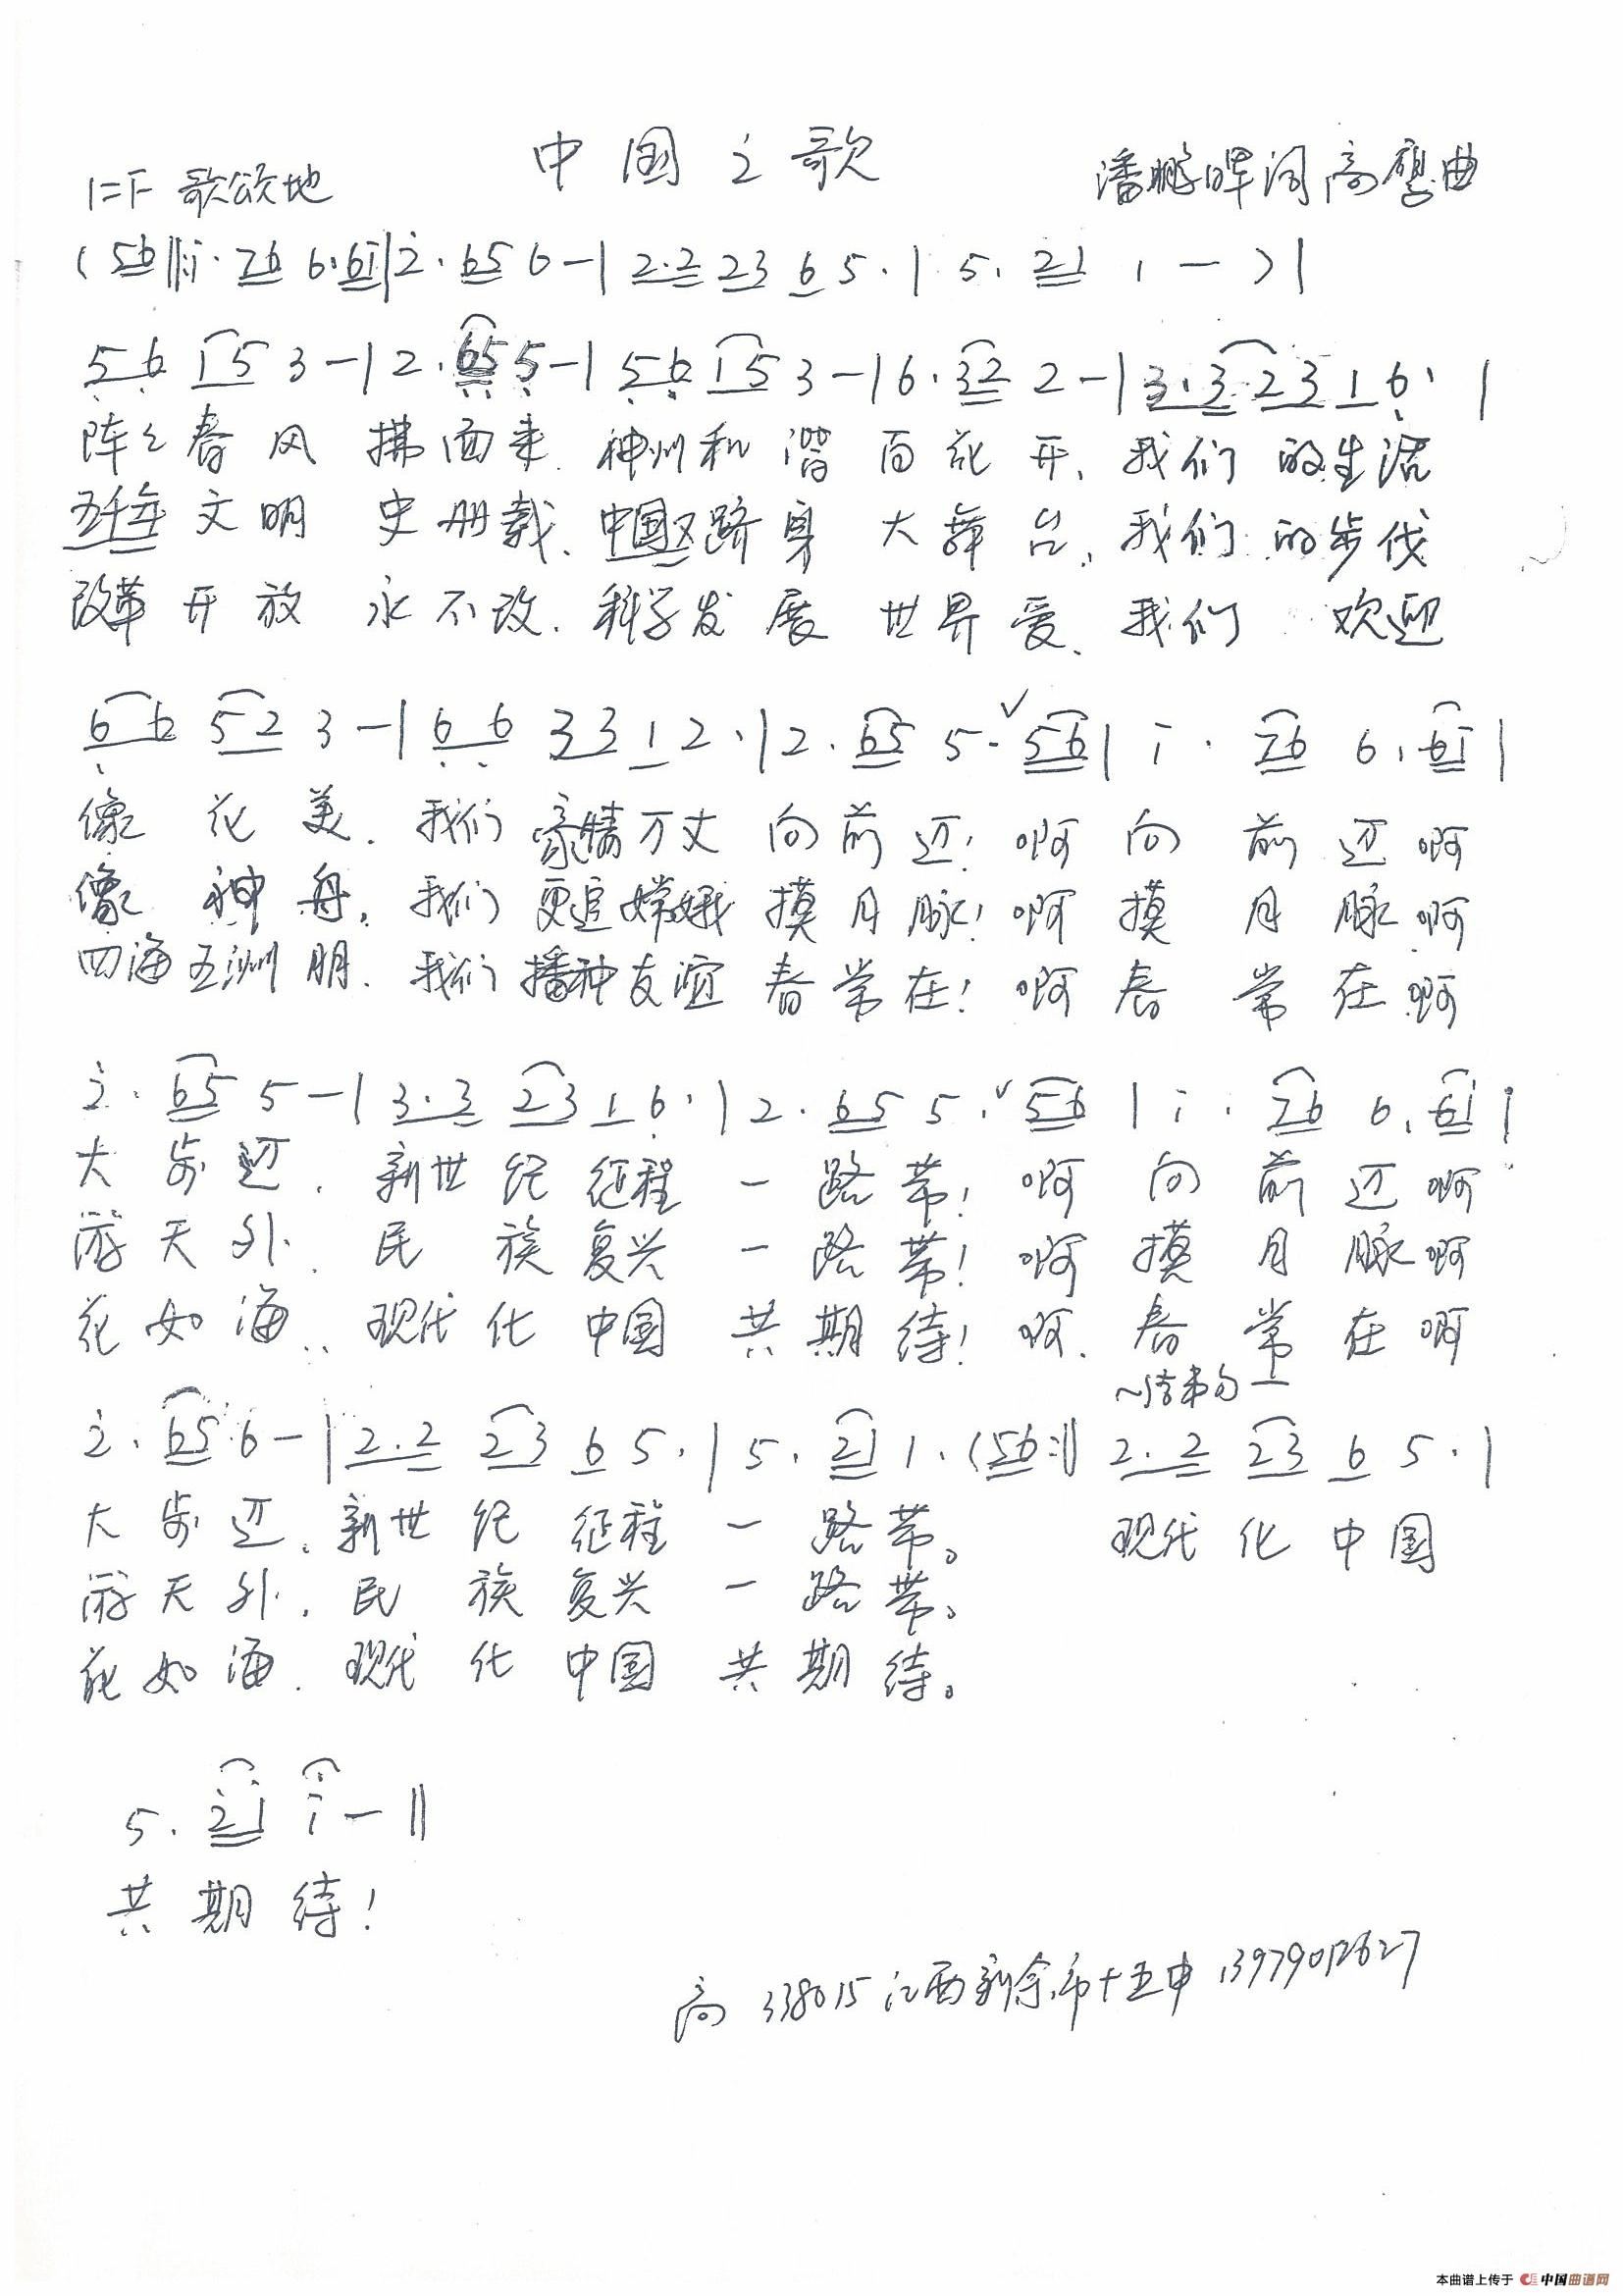 中国之歌
1=F 歌颂地 潘鹏晖词 高鹰曲
(56‖:i·76 6·6i|2·65 6-|2·2 23 6 5·|5·21 1-)|
56 15 3-|2·65 5-|56 15 3-|6·32 2-|3·3 23 1 6·|
阵々春风拂面来.神州和谐百花开,我们的生活
五千年文明史册载、中国又跻身大舞台,我们的步伐
改革开放永不改.科学发展世界爱、我们欢迎
66 52 3-|66 33 1 2·|2·65 5·√56|i·76 6·6i|
像花美.我们豪情万丈向前迈!啊向前迈啊
像神舟,我们更追嫦娥摸月脉!啊摸月脉啊
四海五洲朋.我们播种友谊春常在!啊春常在啊
2·65 5-|3·3 23 1 6·|2·65 5·√56|i·76 6·6i|
大步迈.新世纪征程一路带!啊向前迈啊
游天外.民族复兴一路带!啊摸月脉啊
花如海.现代化中国共期待!啊.春常在啊
结束句
2·65 6-|2·2 23 6 5·|5·21 1·(56:‖2·2 23 6 5·|
大步迈、新世纪征程一路带。现代化中国
游天外.民族复兴一路带。
花如海.现代化中国共期待。
5·2i i-‖
共期待!
高 338015 江西新余市十五中 13979012627
本曲谱上传于 中国曲谱网